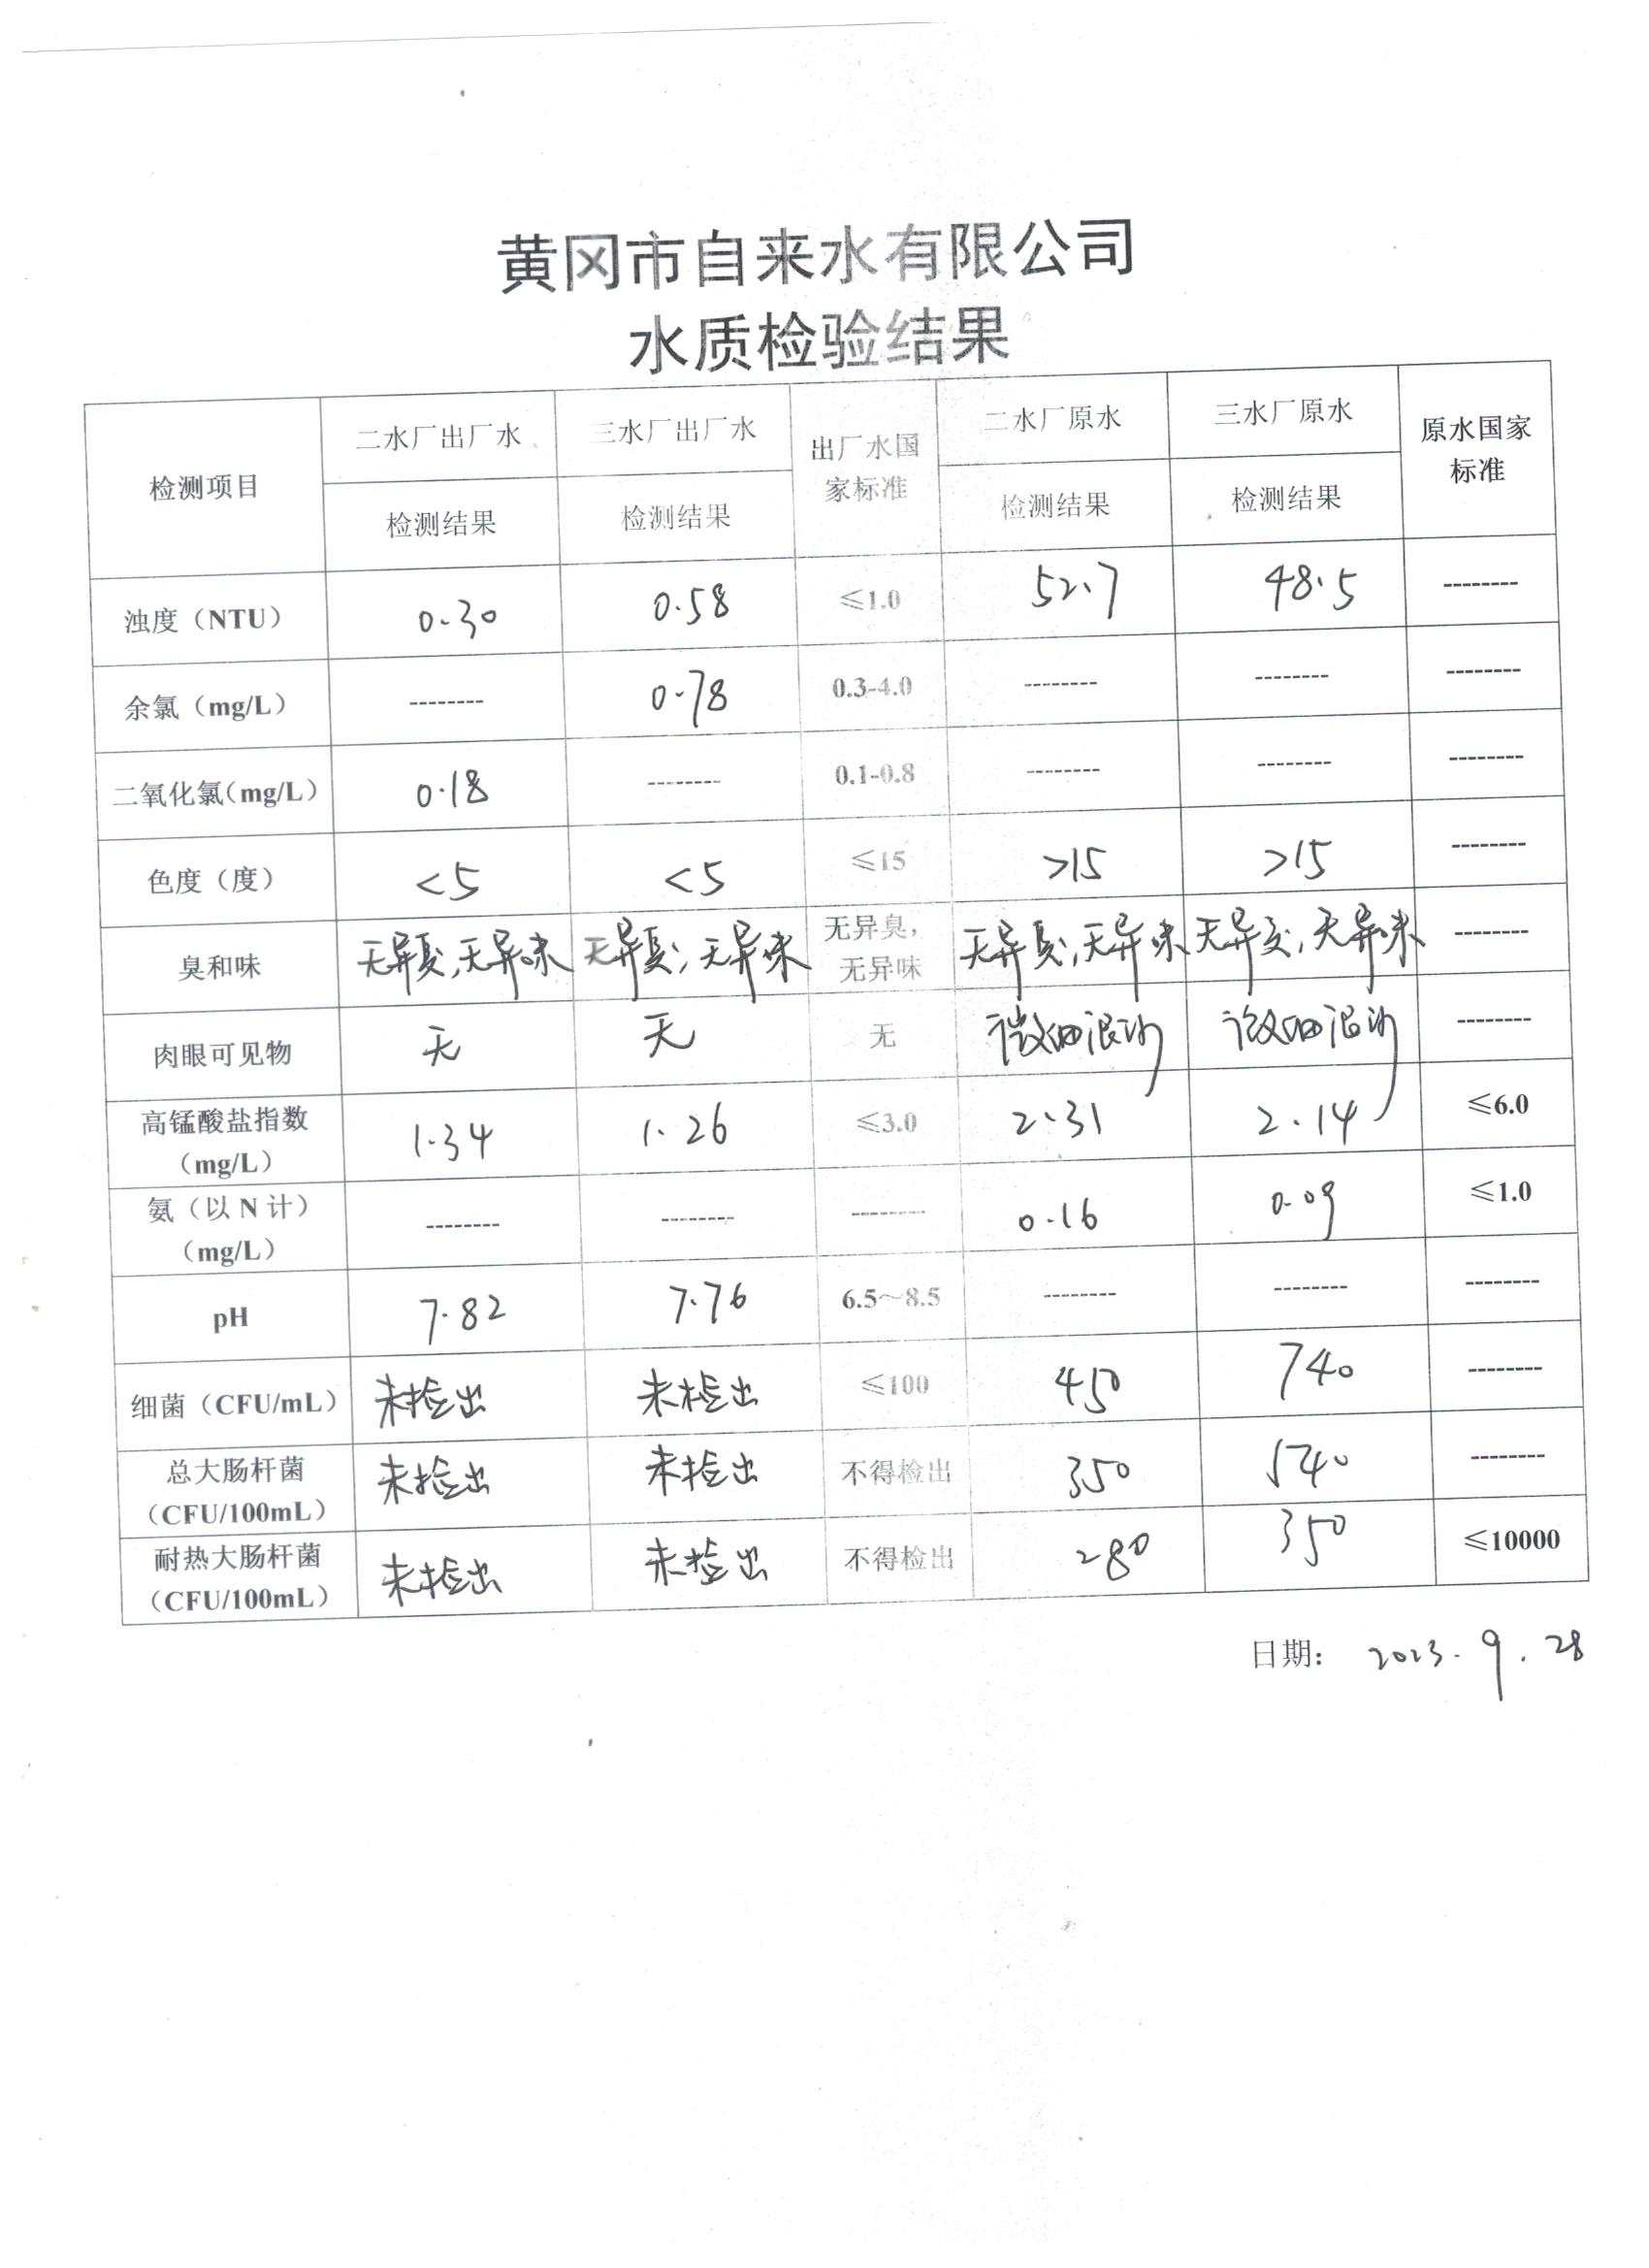 黄冈市自来水有限公司
水质检验结果
检测项目 二水厂出厂水 三水厂出厂水 出厂水国家标准 二水厂原水 三水厂原水 原水国家标准
检测结果 检测结果 检测结果 检测结果
浊度（NTU） 0.30 0.58 ≤1.0 52.7 48.5 --------
余氯（mg/L） -------- 0.78 0.3-4.0 -------- -------- --------
二氧化氯（mg/L） 0.18 -------- 0.1-0.8 -------- -------- --------
色度（度） <5 <5 ≤15 >15 >15 --------
臭和味 无异臭,无异味 无异臭,无异味 无异臭，无异味 无异臭,无异味 无异臭,无异味 --------
肉眼可见物 无 无 无 微细泥沙 微细泥沙 --------
高锰酸盐指数（mg/L） 1.34 1.26 ≤3.0 2.31 2.14 ≤6.0
氨（以 N 计）（mg/L） -------- -------- -------- 0.16 0.09 ≤1.0
pH 7.82 7.76 6.5～8.5 -------- -------- --------
细菌（CFU/mL） 未检出 未检出 ≤100 450 740 --------
总大肠杆菌（CFU/100mL） 未检出 未检出 不得检出 350 540 --------
耐热大肠杆菌（CFU/100mL） 未检出 未检出 不得检出 280 350 ≤10000
日期： 2023.9.28